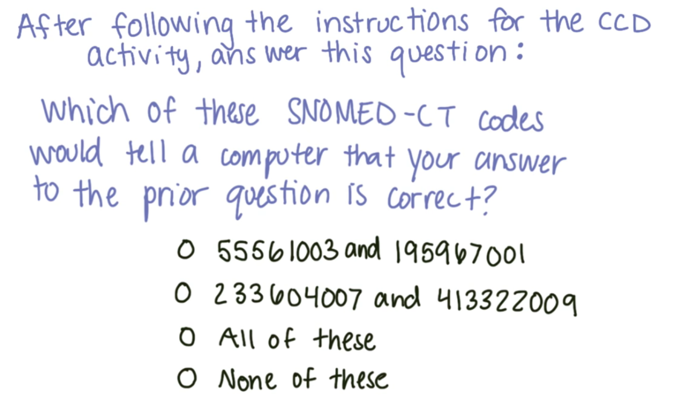 After following the instructions for the CCD
activity, answer this question:
Which of these SNOMED-CT codes
would tell a computer that your answer
to the prior question is correct?
O 55561003 and 195967001
O 233604007 and 413322009
O All of these
O None of these